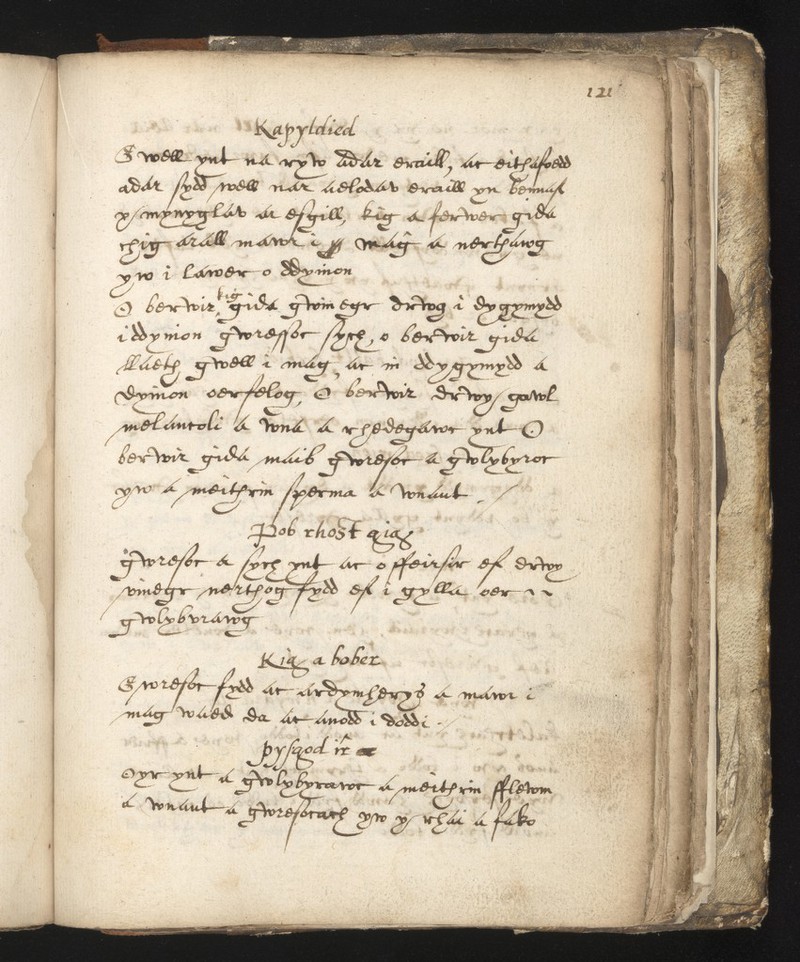 121
Kapyldied
Gwell ynt na ryw adar eraill, ac eithafoedd
adar sydd well nar aelodav eraill yn bennaf
y mynyglav ar esgill, kig a ferwer gida
chig arall mawr i mag a nerthawg
yw i lawer o ddynion
O berwir kig gida gwin egr drwg i dygymydd
i ddynion gwressoc sych, o berwir gida
llaeth gwell i mag ac ni ddygymydd a
dynion oerfelog, O berwir drwy gawl
melancoli a wna a rhedegawc ynt O
berwir gida maib gwresoc a gwlybyroc
yw a meithrin sperma a wnant
Pob rhost gig
gwresoc a sych ynt ac o ffeirsir ef drwy
vinegr nerthog fydd ef i gylla oer
gwlybyrawg
Kig a bober
Gwresoc fydd ac ardymherys a mawr i
mag waed da ac anodd i doddi
pysgod ir
Oyr ynt a gwlybyrawc a meithrin fflewm
a wnant a gwresocach yw y rhai a fako